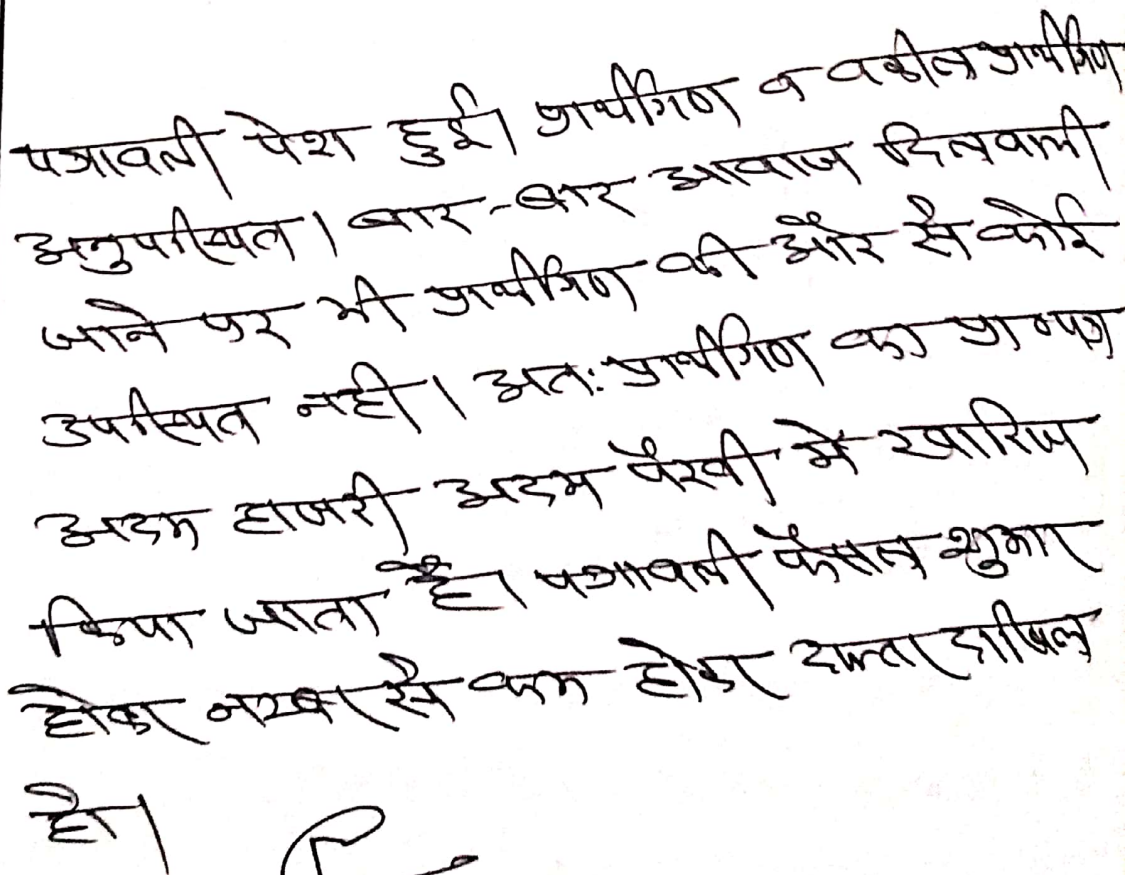 पत्रावली पेश हुई। प्रार्थीगण व वकील प्रार्थीगण
अनुपस्थित। बार-बार आवाज दिलवायी
जाने पर भी प्रार्थीगण की और से कोई
उपस्थित नही। अतः प्रार्थीगण का प्रा०पत्र
अदम हाजरी अदम पैरवी मे खारिज
किया जाता है। पत्रावली फैसल शुमार
होकर नम्बर से कम होकर दफ्तर दाखिल
हो।